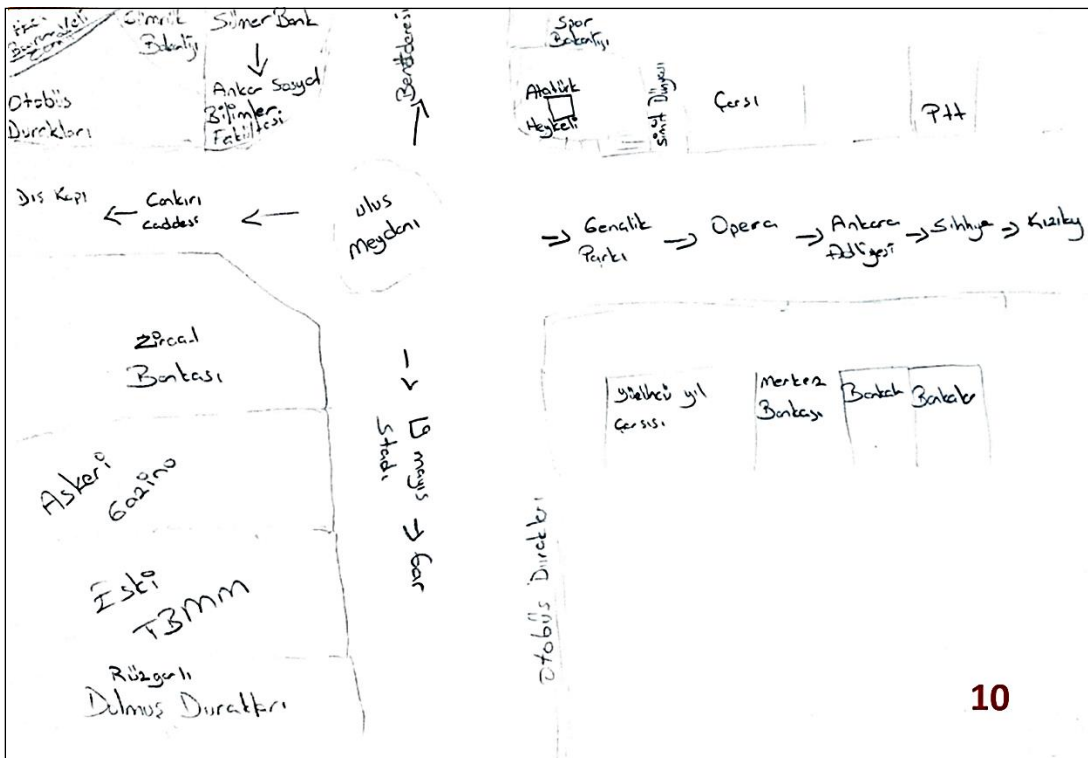 Gümrük
Bakanlığı
Sümer Bank
Ankar Sosyal
Bilimleri
Fakültesi
Otobüs
Durakları
Bentderesi
Spor
Bakanlığı
Atatürk
Heykeli
Simit Dünyası
Çarsı
Ptt
Dış Kapı
Cankırı
caddesi
ulus
meydanı
Genclik
Parkı
Opera
Ankara
Adliyesi
Sıhhye
Kızılay
Ziraat
Bankası
Askeri
Gazino
Eski
TBMM
Rüzgarlı
Dolmuş Durakları
19 mayıs
Stadı
Gar
Otobüs Durakları
yüzüncü yıl
Çarsısı
merkez
Bankası
Bankalar
Bankalar
10